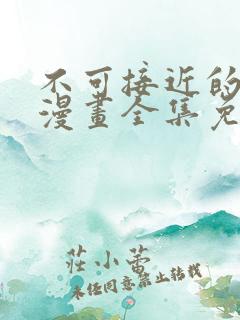 不可接近的
漫畫全集免
莊小蕾
未經同意禁止轉載